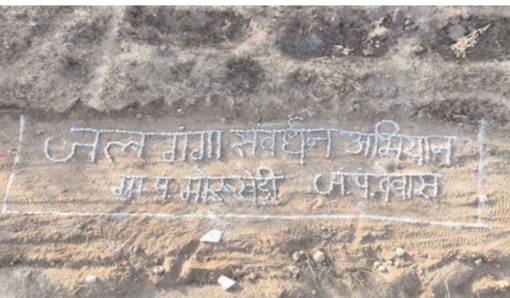 जल गंगा संवर्धन अभियान
ग्रा.पं. मोरूखेड़ी ज.पं.देवास